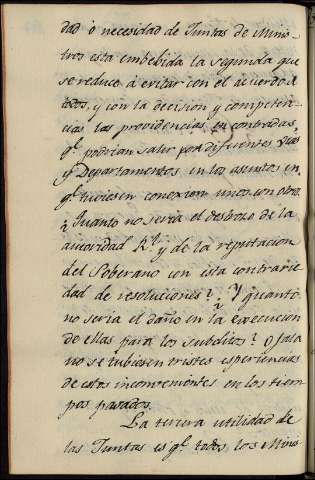 dad ò necesidad de Juntas de Minis-
tros esta embebida la segunda que
se reduce à evitar con el acuerdo de
todos, y con la decision y competen-
cias las providencias encontradas,
qe. podrian salir por diferentes vias
y Departamentos en los asuntos en
qe. tuviesen conexion unos con otros.
¿Quanto no seria el desdoro de la
autoridad Rl. y de la reputacion
del Soberano con esta contrarie-
dad de resoluciones? ¿Y quanto
no seria el daño en la execucion
de ellas para los subditos? Ojala
no se tubiesen tristes esperiencias
de estos inconvenientes en los tiem-
pos pasados.
La tercera utilidad de
las Juntas es qe. todos los Minis-